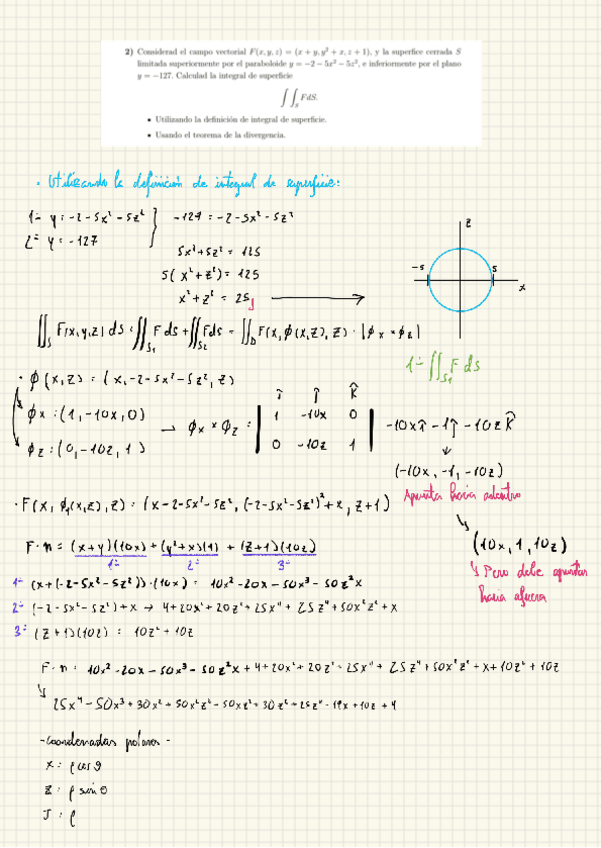 2) Considerad el campo vectorial F(x, y, z) = (x + y, y² + x, z + 1), y la superfice cerrada S
limitada superiormente por el paraboloide y = −2 − 5x² − 5z², e inferiormente por el plano
y = −127. Calculad la integral de superficie
∫∫_S FdS.
• Utilizando la definición de integral de superficie.
• Usando el teorema de la divergencia.
• Utilizando la definición de integral de superficie:
1- y = -2 - 5x² - 5z² } -127 = -2 - 5x² - 5z²
2- y = -127
5x² + 5z² = 125
5(x² + z²) = 125
x² + z² = 25
z
-5 5
x
∬_S F(x,y,z) ds = ∬_S1 F ds + ∬_S2 F ds = ∬_D F(x, ϕ(x,z), z) · |ϕx × ϕz|
1- ∬_S1 F ds
· ϕ(x,z) = (x, -2 - 5x² - 5z², z)
ϕx = (1, -10x, 0)
ϕz = (0, -10z, 1)
→ ϕx × ϕz = | î ĵ k̂
1 -10x 0
0 -10z 1 | -10x î - 1 ĵ - 10z k̂
(-10x, -1, -10z)
Apunta hacia adentro
· F(x, ϕ(x,z), z) = (x - 2 - 5x² - 5z², (-2 - 5x² - 5z²)² + x, z + 1)
(10x, 1, 10z)
Pero debe apuntar
hacia afuera
F · n = (x+y)(10x) + (y²+x)(1) + (z+1)(10z)
1- 2- 3-
1- (x + (-2 - 5x² - 5z²)) · (10x) = 10x² - 20x - 50x³ - 50z²x
2- (-2 - 5x² - 5z²) + x → 4 + 20x² + 20z² + 25x⁴ + 25z⁴ + 50x²z² + x
3- (z+1)(10z) = 10z² + 10z
F · n = 10x² - 20x - 50x³ - 50z²x + 4 + 20x² + 20z² + 25x⁴ + 25z⁴ + 50x²z² + x + 10z² + 10z
25x⁴ - 50x³ + 30x² + 50x²z² - 50xz² + 30z² + 25z⁴ - 19x + 10z + 4
- Coordenadas polares -
x = ρ cos θ
z = ρ sin θ
J = ρ